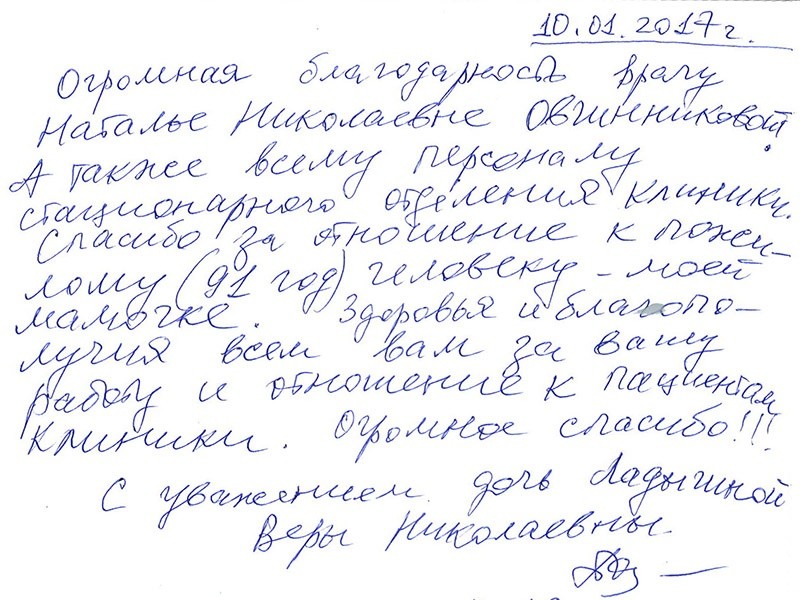 10.01.2017г.
Огромная благодарность врачу
Наталье Николаевне Овчинниковой!
А также всему персоналу
стационарного отделения клиники.
Спасибо за отношение к пожи-
лому (91 год) человеку - моей
мамочке. Здоровья и благопо-
лучия всем вам за вашу
работу и отношение к пациентам
клиники. Огромное спасибо!!!
С уважением дочь Ладыгиной
Веры Николаевны